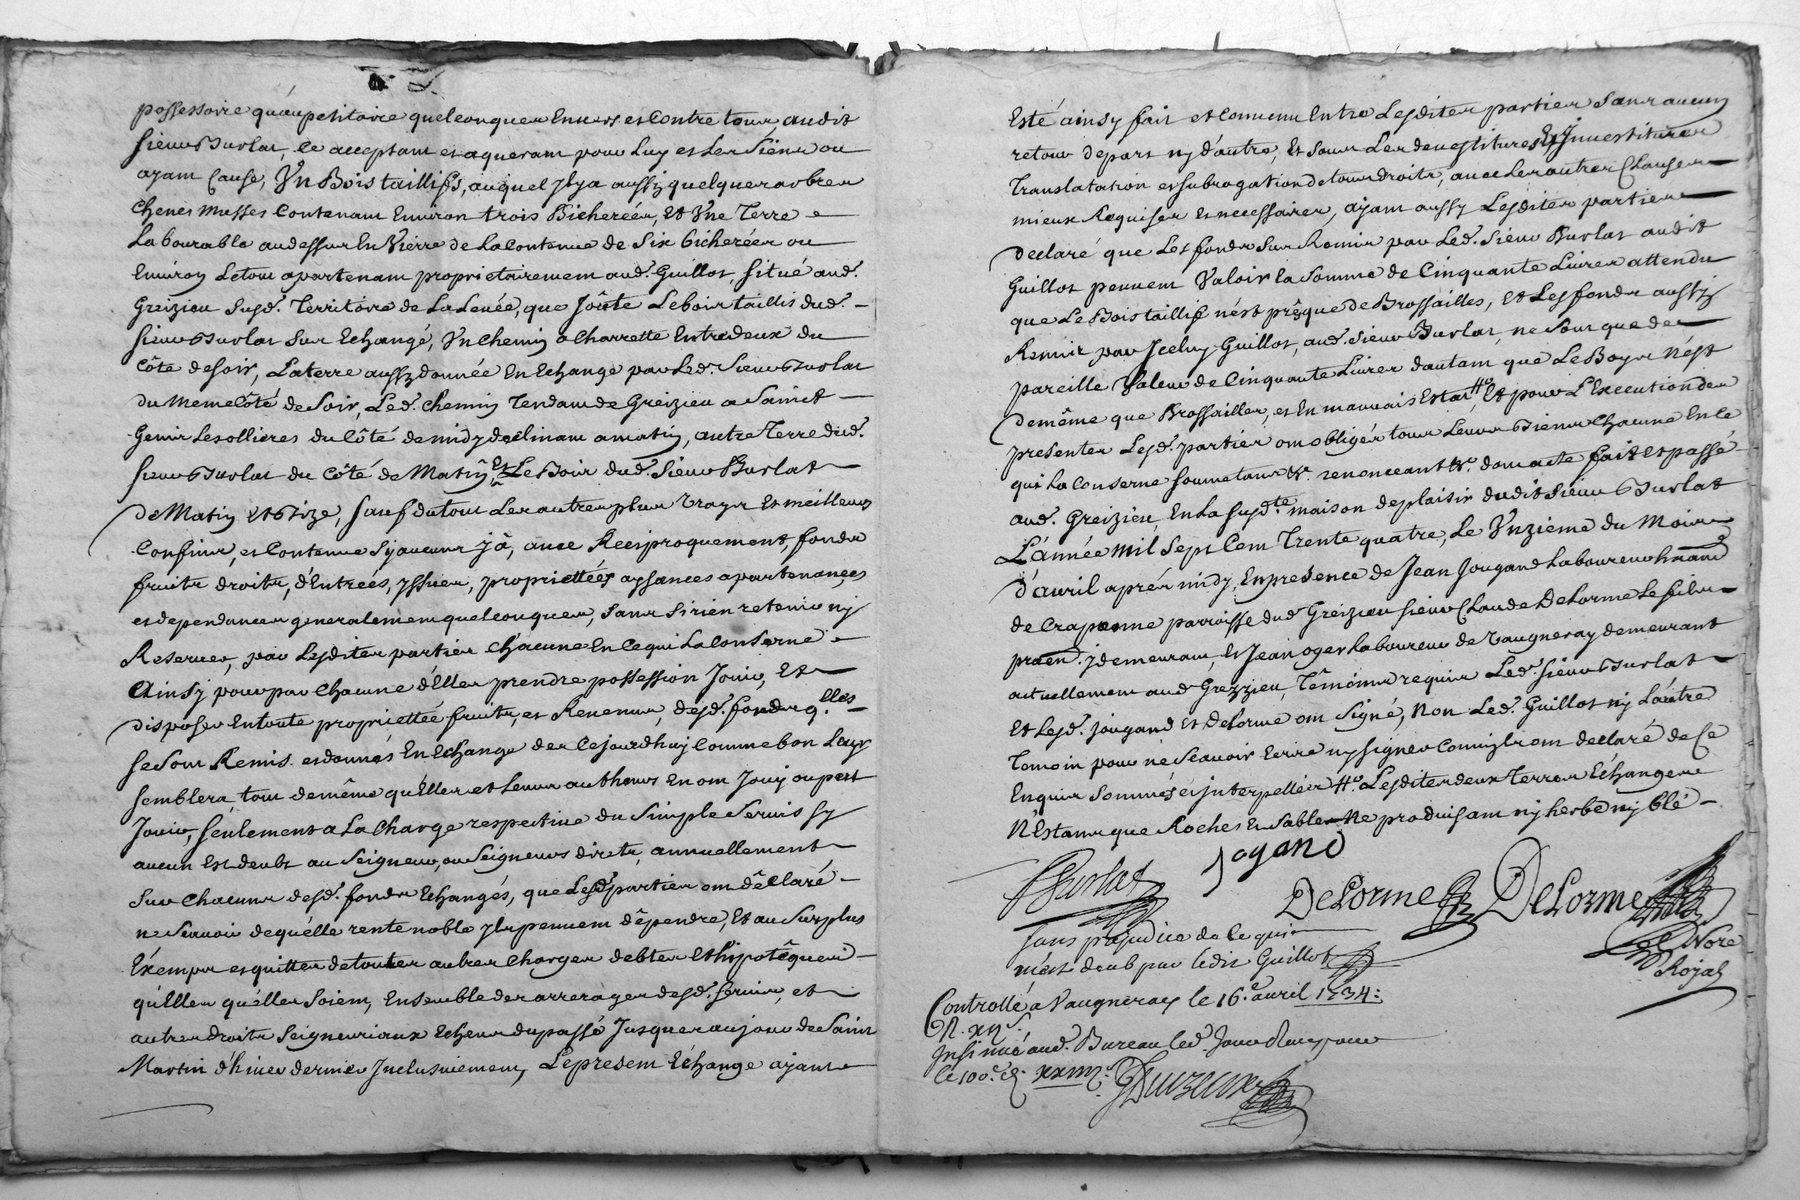 possessoire qu'au petitoire quelconques Envers et Contre tous, audit
sieur Burlat, ce acceptant et aquerant pour Luy et Les Siens ou
ayant Cause, Un Bois taillifs, auquel Jlya aussy quelques arbres
Chenes Musses Contenant Environ trois Bicherées, Et Une Terre
Labourable au dessus En Vierre de La Contenue de Six bicherées ou
Environ Le tout apartenant proprietairement aud. Guillot, situé aud.
Greizieu susd. Territoire de La Levée, que Joûte Le bois taillis dud.
sieur Burlat sur Echangé, Un Chemin a Charrette Entredeux du
Côté de soir, La terre aussy donnée En Echange par Led. Sieur Burlat
du Meme Côté de Soir, Led. Chemin Tendant de Greizieu a Sainct
Genis Lesollieres du Côté de midy declinant a matin, autre Terre dud.
sieur Burlat du Côté de Matin, Et Le Bois dud. Sieur Burlat
de Matin et Bize, sauf du tout Les autres plus Vrays Et meilleurs
Confins, et Contenue sy aucuns Jâ, avec Reciproquement, fonds
fruits droits, d'Entrées, yssues, proprietées aysances apartenances
et dependances generalement quelconques, sans si rien retenir ny
Reserver, par Lesdites parties Chacune En Ce qui La Conserne
Ainsy pour par Chacune d'Elles prendre possession Jouir, Et
disposer En toute proprietée fruits, et Revenus, desd. fonds q.lles
se sont Remis et donnés En Echange des Cejourdhuy Comme bon Leur
semblera, tout de même qu'Elles et Leurs autheurs En ont Jouy ou peut
Jouir, seulement a La Charge respective du Simple Servis sy
aucun Est deubt au Seigneur, ou Seigneurs directs, annuellement
Sur Chacuns desd. fonds Echangés, que Lesd. parties ont dêclaré
ne Scavoir de quélle rente noble Jls peuvent dêpendre, Et au Surplus
Exempts et quittes de toutes autres Charges debtes Et hipotêques
qu'Elles qu'elles Soient, Ensemble des arrerages desd. servis, et
autres droits Seigneuriaux Echeus du passé Jusques au jour de Saint
Martin d'hiver dernier Jnclusivement, Le present Echange ayant
Esté ainsy fait et Convenu Entre Lesdites parties sans aucun
retour de part ny d'autre, Et sous Les devestitures Et Jnvestitures
Translatation et subrogation de tous droits, avec Les autres Clauses
mieux Requises Et necessaires, ayant aussy Lesdites parties
declaré que Les fonds sur Remis par Led. Sieur Burlat audit
Guillot peuvent Valoir la somme de Cinquante Livres attendu
que Le Bois taillif n'est prêque de Brossailles, Et Les fonds aussy
Remis par Jceluy Guillot, aud. Sieur Burlat, ne sont que de
pareille Valeur de Cinquante Livres d'autant que Le Boys N'est
demême que Brossailles, et En mauvais Estat # Et pour L'Execution des
presentes Lesd. parties ont obligés tous Leurs Biens Chacune En Ce
qui La Conserne soumetant &c. renonceant &c. dont acte fait et passé
aud. Greizieu, En La susd.te maison de plaisir dudit Sieur Burlat
L'année mil sept Cent Trente quatre, Le Unzieme du Mois
d'avril aprés midy, En presence de Jean Jougand Laboureur
de Craponne parroisse dud. Greizieu sieur Claude DeLorme Le fils
praen. y demeurant, Et Jean oger Laboureur de Vaugneray demeurant
actuellement aud. Grezzieu, Têmoins requis Led. sieur Burlat
Et Lesd. Jougand et DeLorme ont Signé, Non Led. Guillot ny L'autre
Temoin pour ne Scavoir Ecrire ny signer Comme Jls ont declaré de Ce
Enquis Sommés et jnterpellés #. Lesdites deux Terres Echangées
N'Estants que Roches Et Sables Ne produisant ny herbe ny blé
Burlat
Jogand
DeLorme DeLorme
Nore
Rojal
sans prejudice de ce qui
m'est deub par ledit Guillot
Controllé a Vaugneray le 16.e avril 1734:
R. xij s.
Jnsinué aud. Bureau led. Jour Reçu pour
le 100.e d. xxiiii s.